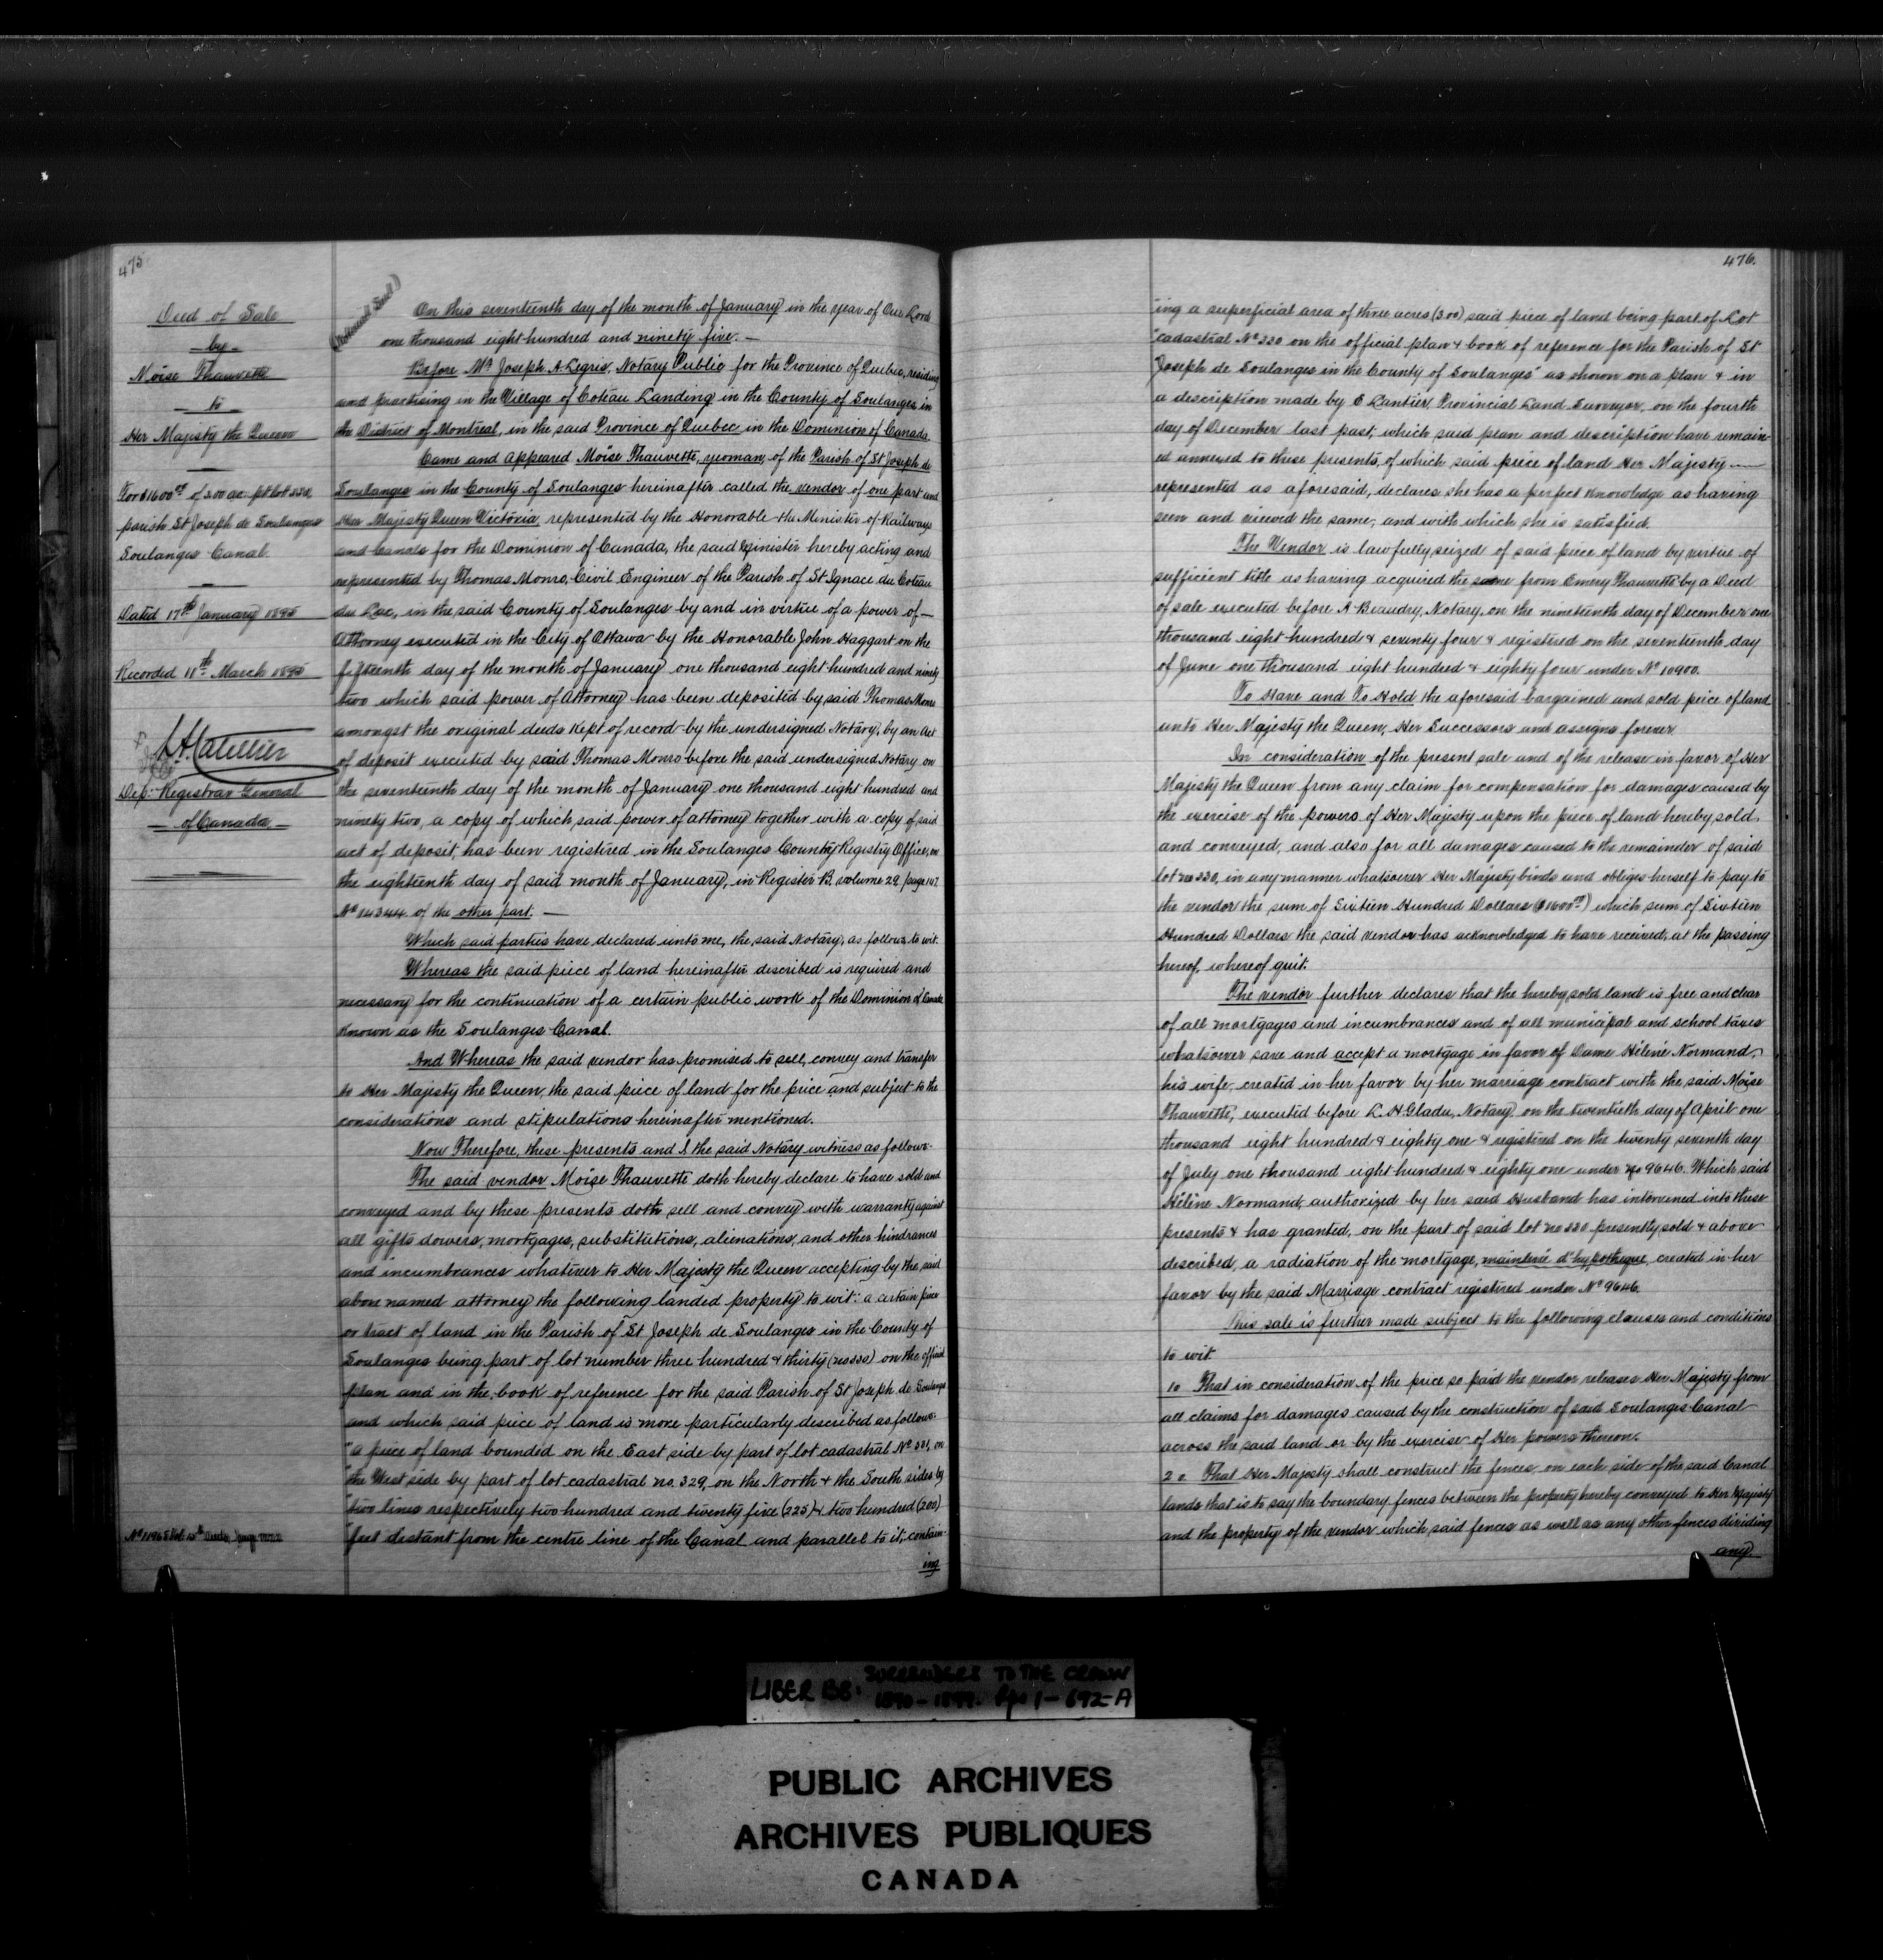 475
Deed of Sale
by
Moïse Thauvette
to
Her Majesty the Queen
For $1600.00 of 3.00 ac. pt lot 330,
parish St Joseph de Soulanges
Soulanges Canal.
Dated 17th January 1895
Recorded 11th March 1895
Dep: Registrar General
of Canada
On this seventeenth day of the month of January in the year of Our Lord
one thousand eight hundred and ninety five. —
Before Mtre Joseph A Legris, Notary Public for the Province of Quebec, residing
and practising in the Village of Coteau Landing in the County of Soulanges in
the District of Montreal, in the said Province of Quebec in the Dominion of Canada
Came and Appeared Moïse Thauvette, yeoman, of the Parish of St Joseph de
Soulanges in the County of Soulanges hereinafter called the vendor of one part and
Her Majesty Queen Victoria, represented by the Honorable the Minister of Railways
and Canals for the Dominion of Canada, the said Minister hereby acting and
represented by Thomas Monro, Civil Engineer of the Parish of St Ignace du Coteau
du Lac, in the said County of Soulanges by and in virtue of a power of —
Attorney executed in the City of Ottawa by the Honorable John Haggart on the
fifteenth day of the month of January one thousand eight hundred and ninety
two which said power of Attorney has been deposited by said Thomas Monro
amongst the original deeds kept of record by the undersigned Notary, by an act
of deposit executed by said Thomas Monro before the said undersigned Notary on
the seventeenth day of the month of January one thousand eight hundred and
ninety two, a copy of which said power of attorney together with a copy of said
act of deposit, has been registered in the Soulanges County Registry Office, on
the eighteenth day of said month of January, in Register B. volume 29 page 147
No 14344 of the other part. —
Which said parties have declared unto me, the said Notary, as follows to wit.
Whereas the said piece of land hereinafter described is required and
necessary for the continuation of a certain public work of the Dominion of Canada
known as the Soulanges Canal.
And Whereas the said vendor has promised to sell, convey and transfer
to Her Majesty the Queen, the said piece of land for the price and subject to the
considerations and stipulations hereinafter mentioned.
Now Therefore, these presents and I the said Notary witness as follows:
The said vendor Moïse Thauvette doth hereby declare to have sold and
conveyed and by these presents doth sell and convey with warranty against
all gifts dowers, mortgages, substitutions, alienations, and other hindrances
and incumbrances whatever to Her Majesty the Queen accepting by the said
above named attorney the following landed property to wit: a certain piece
or tract of land in the Parish of St Joseph de Soulanges in the County of
Soulanges being part of lot number three hundred & thirty (no 330) on the official
plan and in the book of reference for the said Parish of St Joseph de Soulanges
and which said piece of land is more particularly described as follows:
"a piece of land bounded on the East side by part of lot cadastral No 331, on
"the West side by part of lot cadastral no. 329, on the North & the South sides by
"two lines respectively two hundred and twenty five (225) & two hundred (200)
"feet distant from the centre line of the Canal and parallel to it, contain-
ing
476.
ing a superficial area of three acres (3.00) said piece of land being part of Lot
"cadastral No 330 on the official plan & book of reference for the Parish of St
"Joseph de Soulanges in the County of Soulanges" as shown on a plan & in
a description made by E Lantier, Provincial Land Surveyor, on the fourth
day of December last past, which said plan and description have remain-
ed annexed to these presents, of which said piece of land Her Majesty —
represented as aforesaid, declares she has a perfect knowledge as having
seen and viewed the same, and with which she is satisfied.
The Vendor is lawfully seized of said piece of land by virtue of
sufficient title as having acquired the same from Emery Thauvette by a Deed
of sale executed before A Beaudry, Notary, on the nineteenth day of December one
thousand eight hundred & seventy four & registered on the seventeenth day
of June one thousand eight hundred & eighty four under No 10900.
To Have and To Hold the aforesaid bargained and sold piece of land
unto Her Majesty the Queen, Her Successors and assigns forever.
In consideration of the present sale and of the release in favor of Her
Majesty the Queen from any claim for compensation for damages caused by
the exercise of the powers of Her Majesty upon the piece of land hereby sold,
and conveyed, and also for all damages caused to the remainder of said
lot no 330, in any manner whatsoever Her Majesty binds and obliges herself to pay to
the vendor the sum of Sixteen Hundred Dollars ($1600.00) which sum of Sixteen
Hundred Dollars the said vendor has acknowledged to have received, at the passing
hereof, whereof quit.
The vendor further declares that the hereby sold land is free and clear
of all mortgages and incumbrances and of all municipal and school taxes
whatsoever save and accept a mortgage in favor of Dame Hélène Normand,
his wife, created in her favor by her marriage contract with the said Moïse
Thauvette, executed before L. H. Gladu, Notary, on the twentieth day of April one
thousand eight hundred & eighty one & registered on the twenty seventh day
of July one thousand eight hundred & eighty one under No 9646. Which said
Hélène Normand, authorized by her said Husband has intervened into these
presents & has granted, on the part of said lot no 330 presently sold & above
described, a radiation of the mortgage, mainlevée d'hypothèque, created in her
favor by the said Marriage contract registered under No 9646.
This sale is further made subject to the following clauses and conditions
to wit
1o That in consideration of the price so paid the vendor releases Her Majesty from
all claims for damages caused by the construction of said Soulanges Canal
across the said land or by the exercise of Her powers thereon.
2o. That Her Majesty shall construct the fences on each side of the said Canal
lands that is to say the boundary fences between the property hereby conveyed to Her Majesty
and the property of the vendor which said fences as well as any other fences dividing
any
LIBER BB: SURRENDERS TO THE CROWN
1890-1899. Pgs 1-692-A
PUBLIC ARCHIVES
ARCHIVES PUBLIQUES
CANADA